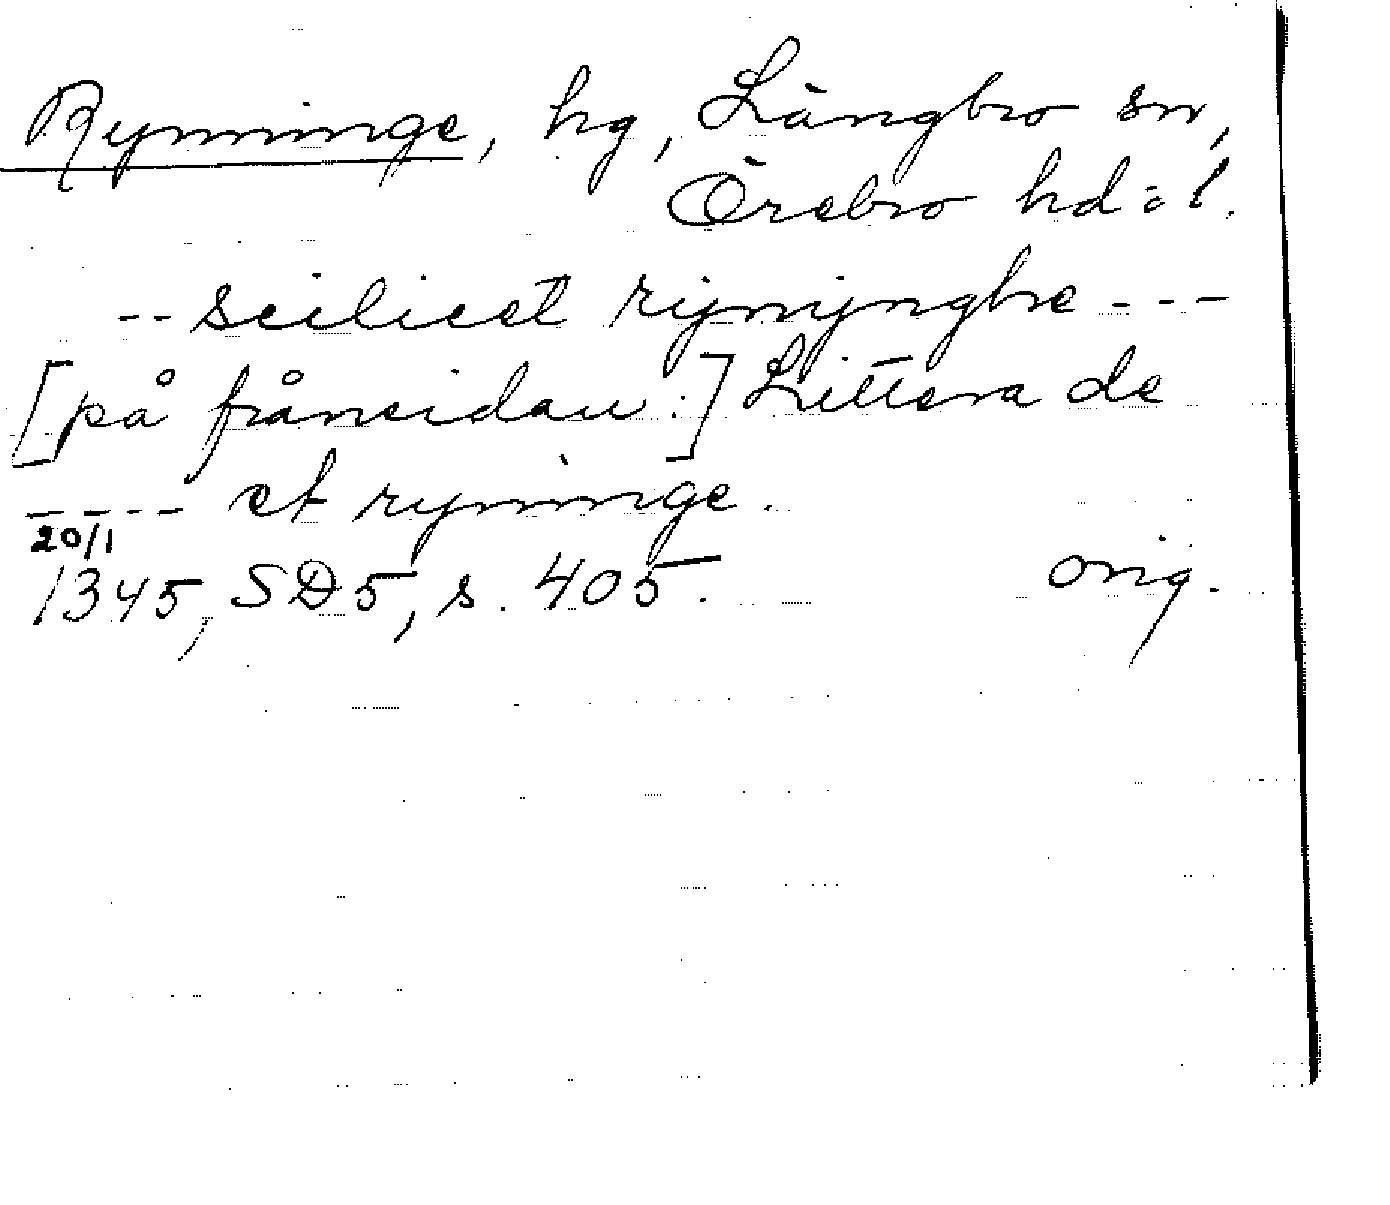 Rynninge, hg, Längbro sn,
Örebro hd:l.
-- scilicet rijnijnghe ---
[på frånsidan:] Littera de
----- et ryninge.
20/1
1345, SD5, s. 405. orig.